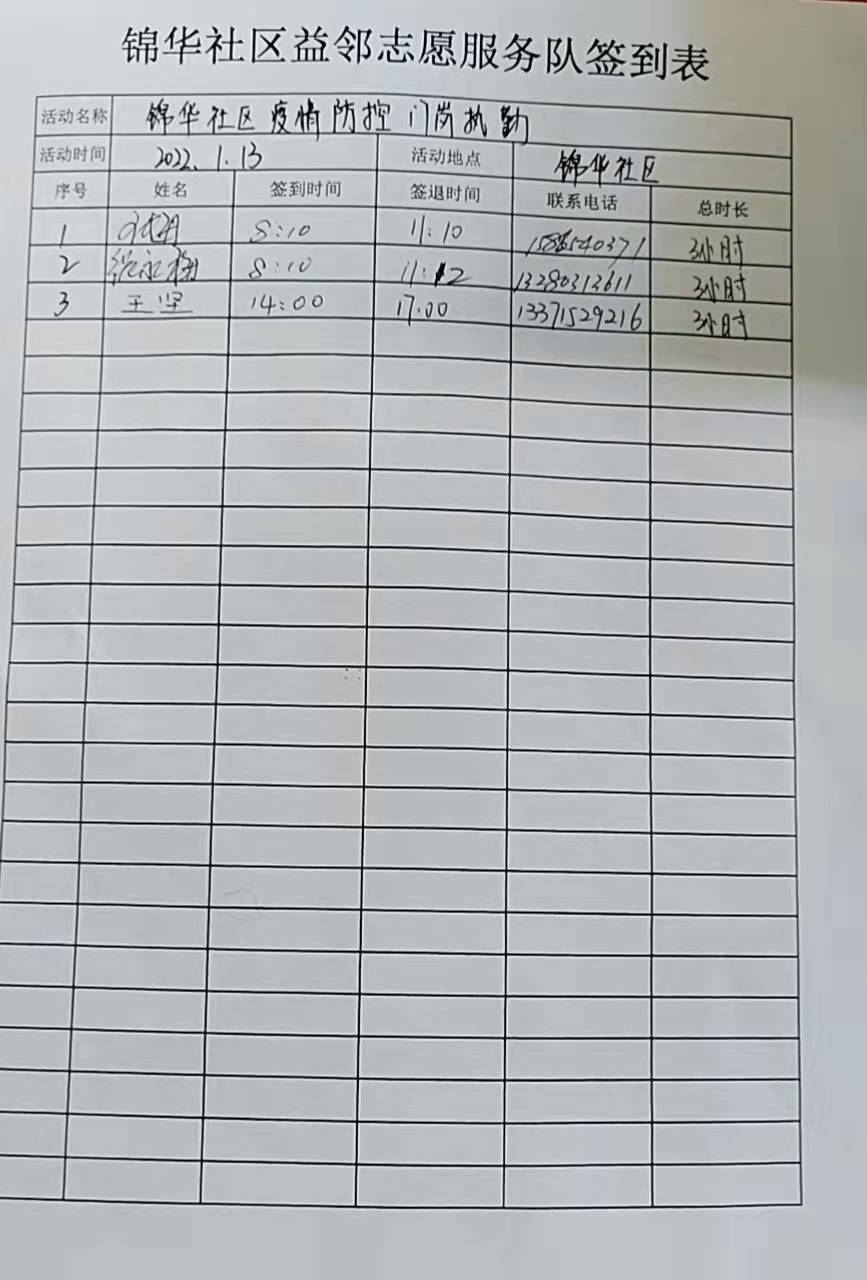 锦华社区益邻志愿服务队签到表
活动名称 锦华社区疫情防控门岗执勤
活动时间 2022.1.13 活动地点 锦华社区
序号 姓名 签到时间 签退时间 联系电话 总时长
1 8:10 11:10 3小时
2 8:10 11:12 13280313611 3小时
3 王坚 14:00 17:00 13371529216 3小时